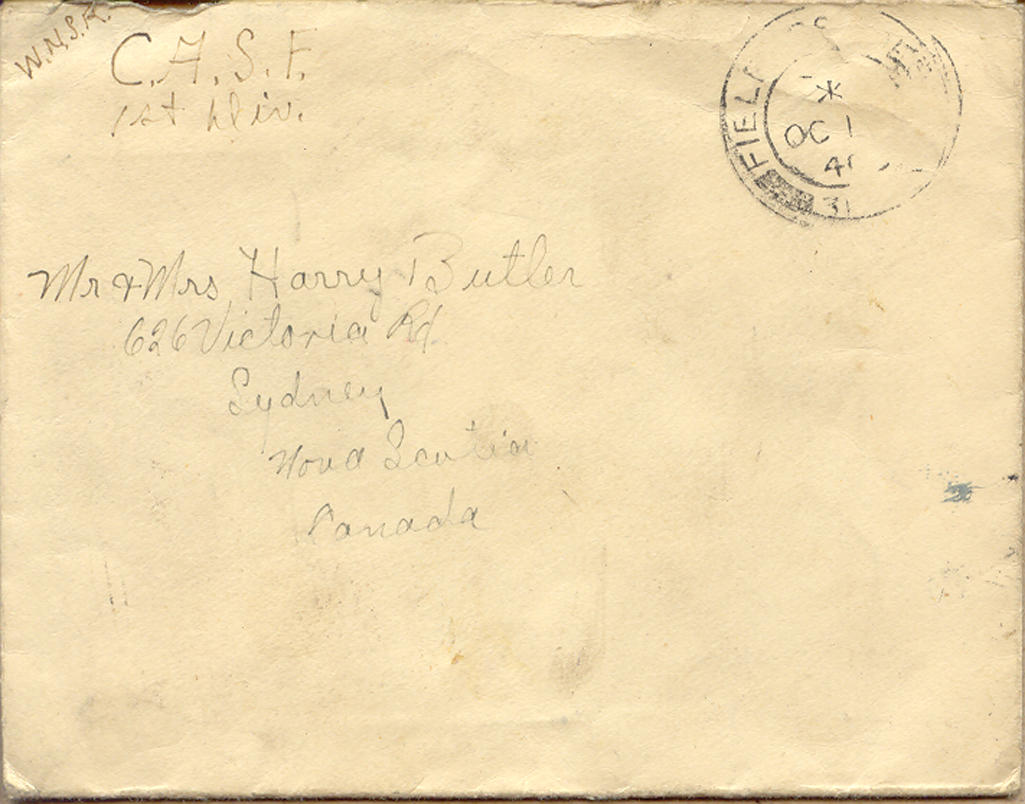 W.N.S.R.
C.A.S.F.
1st Div.
FIEL
OC 1
4
31
Mr & Mrs Harry Butler
626 Victoria Rd.
Sydney
Nova Scotia
Canada